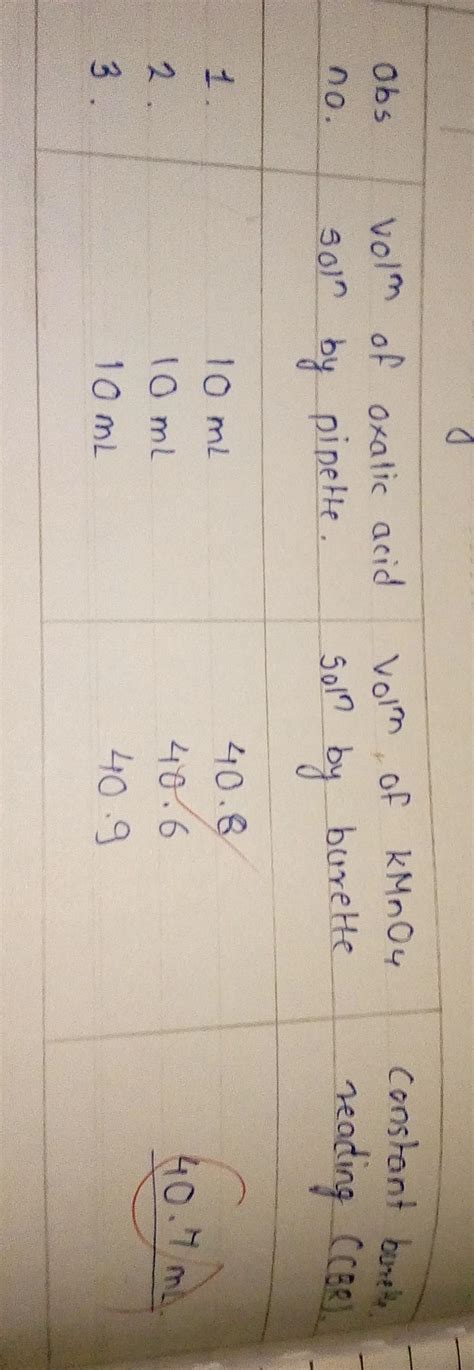 Obs no.
Vol^m of oxalic acid sol^n by pipette.
Vol^m of KMnO4 sol^n by burrette
Constant burette reading (CBR).
1. 10 mL 40.8
2. 10 mL 40.6 40.7 mL
3. 10 mL 40.9